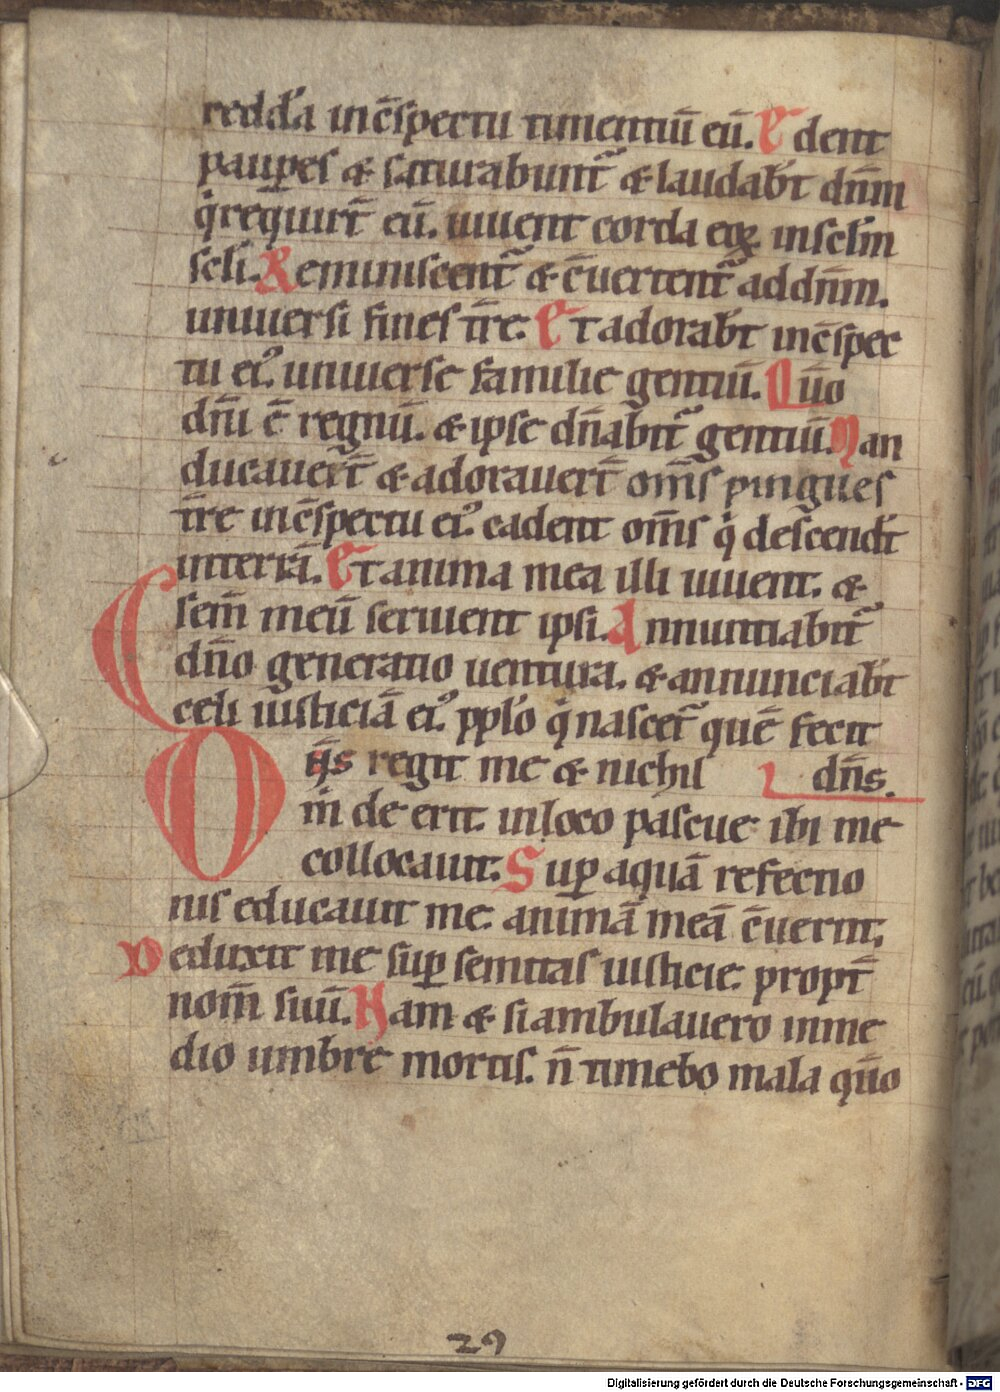 redda in c̄spectu timentiū eū. Edent
paup̱es & saturabunt᷑ & laudab̄t dn̄m
q̇ requirt̄ eū. uiuent corda eoꝝ in sclm̄
scl̄i. Reminiscent᷑ & c̄uertent᷑ ad dn̄m.
uniuersi fines tr̄e. Et adorab̄t in c̄spec
tu ei᷒. uniuerse familie gentiū. Qūo
dn̄i ē regnū. & ipse dn̄abit᷑ gentiū. Man
ducauert̄ & adorauert̄ om̄s pingues
tr̄e in c̄spectu ei᷒. cadent om̄s q̇ descend̄t
in terrā. Et anima mea illi uiuet. &
sem̄ meū seruient ipsi. Annuntiabit᷑
dn̄o generatio uentura. & annunciab̄t
Celi iusticiā ei᷒. pplo q̇ nascet᷑ quē fecit
dn̄s.
Dn̄s regit me & nichil
m̄ de erit. in loco pascue ibi me
collocauit. Sup̱ aquā refectio
nis educauit me. animā meā c̄uertit.
Deduxit me sup̱ semitas iusticie. propt̄
nom̄ suū. Nam & si ambulauero in me
dio umbre mortis. n̄ timebo mala qūo
29
Digitalisierung gefördert durch die Deutsche Forschungsgemeinschaft - DFG